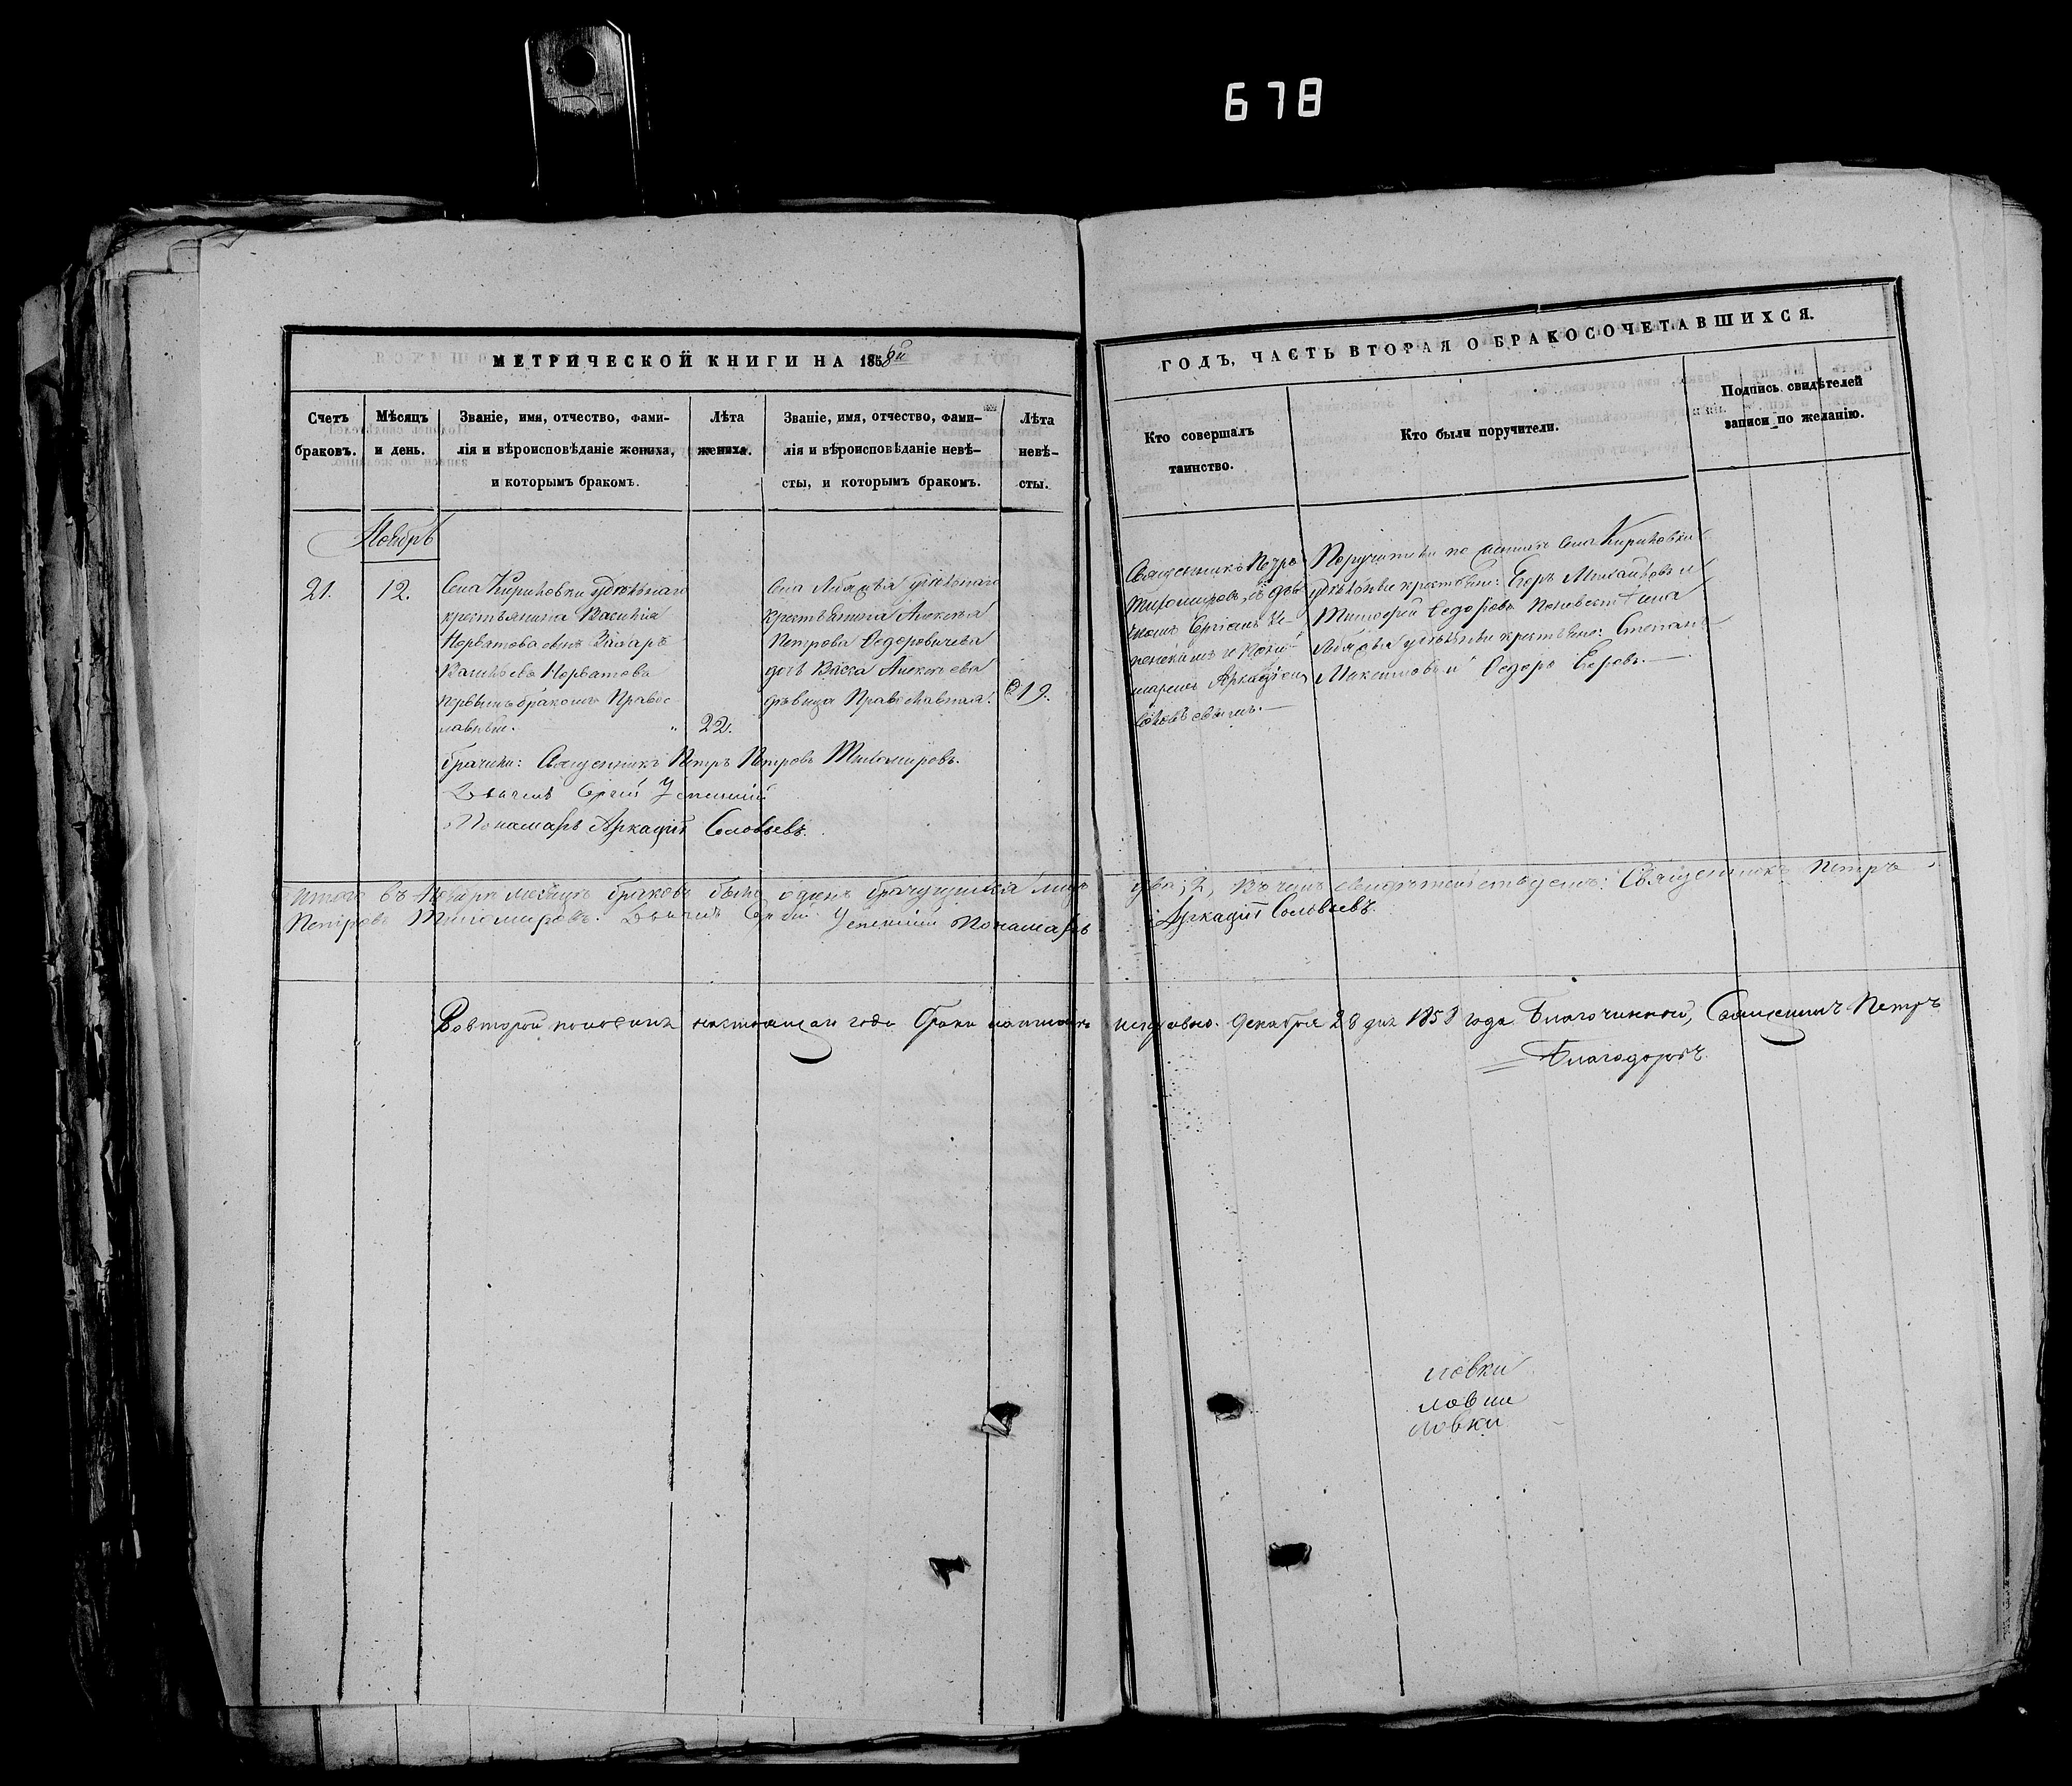 678
МЕТРИЧЕСКОЙ КНИГИ НА 1858й
Счетъ браковъ.
Мѣсяцъ и день.
Званіе, имя, отчество, фами-
лія и вѣроисповѣданіе жениха,
и которымъ бракомъ.
Лѣта
жениха.
Званіе, имя, отчество, фами-
лія и вѣроисповѣданіе невѣ-
сты, и которымъ бракомъ.
Лѣта
невѣ-
сты.
Ноябрь
21.
12.
Села Кириловки удѣльнаго
крестьянина Василия
Горбатова сынъ
Васильевъ Горбатовъ
первымъ бракомъ Правос-
лавный.
22.
Села удѣльнаго
крестьянина Алексѣя
Петрова Федоровичева
дочь Васса Алексѣева
дѣвица Православная.
19.
Брачили: Священникъ Петръ Петровъ Тихомировъ.
Дьячекъ Сергій Успенскій
Понамарь Аркадій Соловьевъ.
Итого въ Ноябрѣ месяцѣ браковъ былъ одинъ брачущихся лицъ
Петровъ Тихомировъ. Дьячекъ Сергій Успенскій Понамарь
Во второй половинѣ настоящаго года браки
ГОДЪ, ЧАСТЬ ВТОРАЯ О БРАКОСОЧЕТАВШИХСЯ.
Кто совершалъ
таинство.
Кто были поручители.
Подпись свидѣтелей
записи по желанію.
Священникъ Петръ
Тихомировъ, съ дья-
чкомъ Сергіемъ Ус-
пенскимъ и Поно-
маремъ Аркадіемъ
Поручители по женихѣ Села Кириловки
удѣльные крестьяне: Егоръ Михайловъ и
Тимофей Федоровъ По невестѣ Села
удѣльные крестьяне: Степанъ
Максимовъ и Федоръ Егоровъ.
два; 2, Въ чемъ свидѣтельствуемъ: Священникъ Петръ
Аркадій Соловьевъ.
исправно. Декабря 28 дня 1858 года Благочинный, Священникъ Петръ
ловки
ловки
ловки